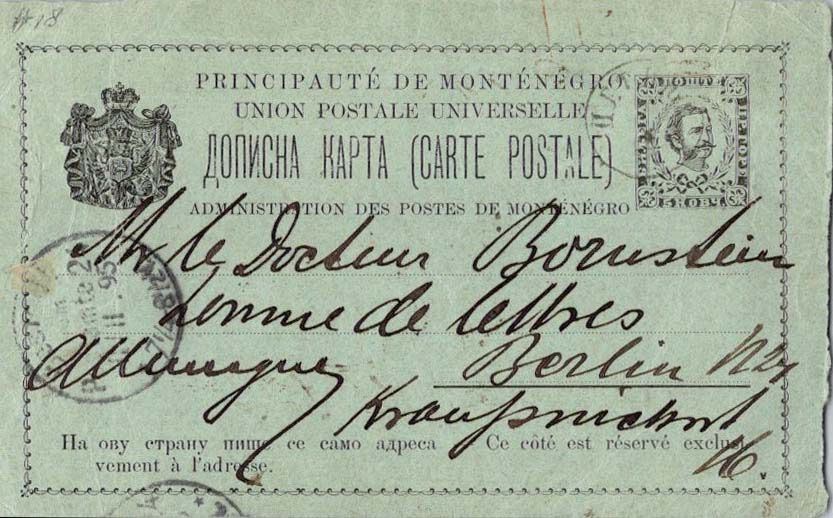 #18
PRINCIPAUTÉ DE MONTÉNÉGRO
UNION POSTALE UNIVERSELLE
ДОПИСНА КАРТА (CARTE POSTALE)
ADMINISTRATION DES POSTES DE MONTÉNÉGRO
5 НОВЧ
Mr le Docteur Bornstein
homme de lettres
Allemagne Berlin N24
На ову страну пише се само адреса Ce côté est réservé exclusi-
vement à l'adresse.
11 95